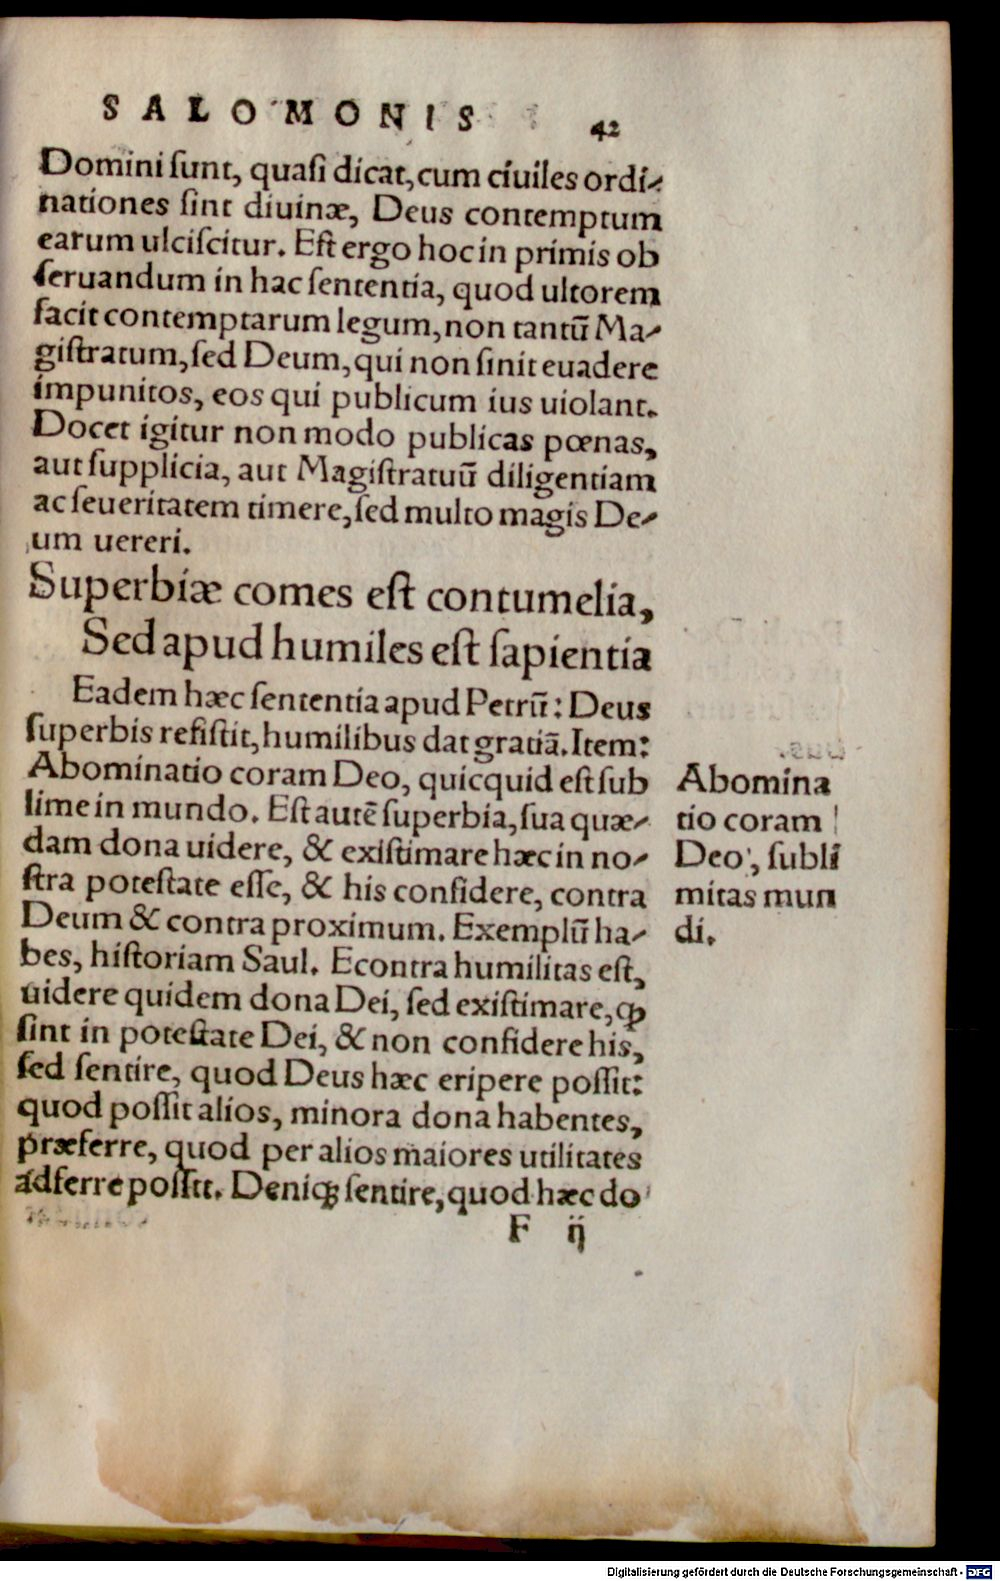 SALOMONIS 42
Domini ſunt, quaſi dicat, cum ciuiles ordi-
nationes ſint diuinæ, Deus contemptum
earum ulciſcitur. Eſt ergo hoc in primis ob
ſeruandum in hac ſententia, quod ultorem
facit contemptarum legum, non tantū Ma-
giſtratum, ſed Deum, qui non ſinit euadere
impunitos, eos qui publicum ius uiolant.
Docet igitur non modo publicas pœnas,
aut ſupplicia, aut Magiſtratuū diligentiam
ac ſeueritatem timere, ſed multo magis De-
um uereri.
Superbiæ comes eſt contumelia,
Sed apud humiles eſt ſapientia
Eadem hæc ſententia apud Petrū: Deus
ſuperbis reſiſtit, humilibus dat gratiā. Item:
Abominatio coram Deo, quicquid eſt ſub
lime in mundo. Eſt autē ſuperbia, ſua quæ-
dam dona uidere, & exiſtimare hæc in no-
ſtra poteſtate eſſe, & his confidere, contra
Deum & contra proximum. Exemplū ha-
bes, hiſtoriam Saul. Econtra humilitas eſt,
uidere quidem dona Dei, ſed exiſtimare, ꝙ
ſint in poteſtate Dei, & non confidere his,
ſed ſentire, quod Deus hæc eripere poſſit:
quod poſſit alios, minora dona habentes,
præferre, quod per alios maiores utilitates
adferre poſſit. Deniqꝫ ſentire, quod hæc do
F ij
Abomina
tio coram
Deo, ſubli
mitas mun
di.
Digitalisierung gefördert durch die Deutsche Forschungsgemeinschaft - DFG